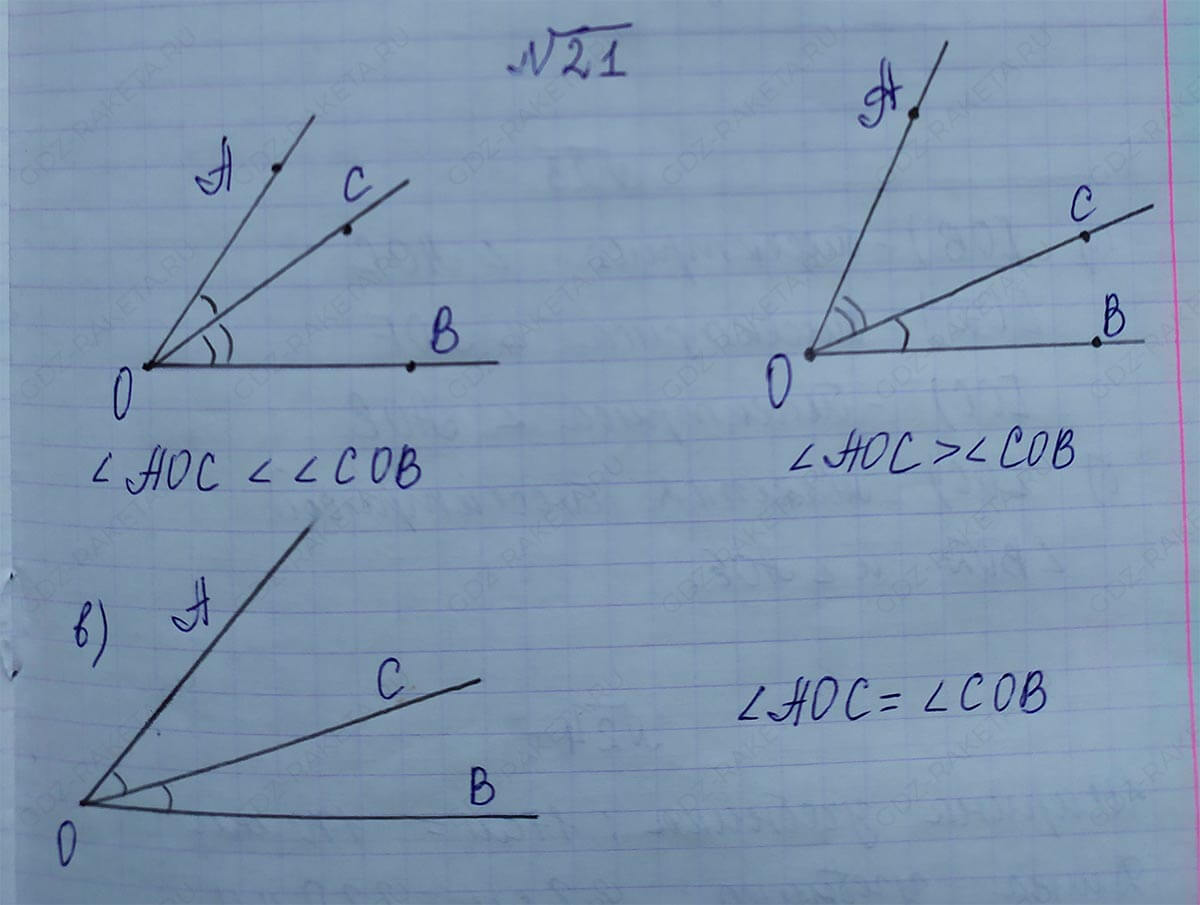 №21
A
C
B
O
∠AOC < ∠COB
A
C
B
O
∠AOC > ∠COB
в)
A
C
B
O
∠AOC = ∠COB
GDZ-RAKETA.RU